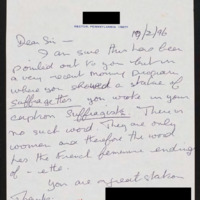 19/2/96
Dear Sir —
I am sure this has been
pointed out to you but in
a very recent money program
where you showed a statue of
Suffragettes you wrote in your
caption Suffragists. There is
no such word. They are only
women and therefore the word
has the French feminine ending
of - ette.
You are a great station
Thanks